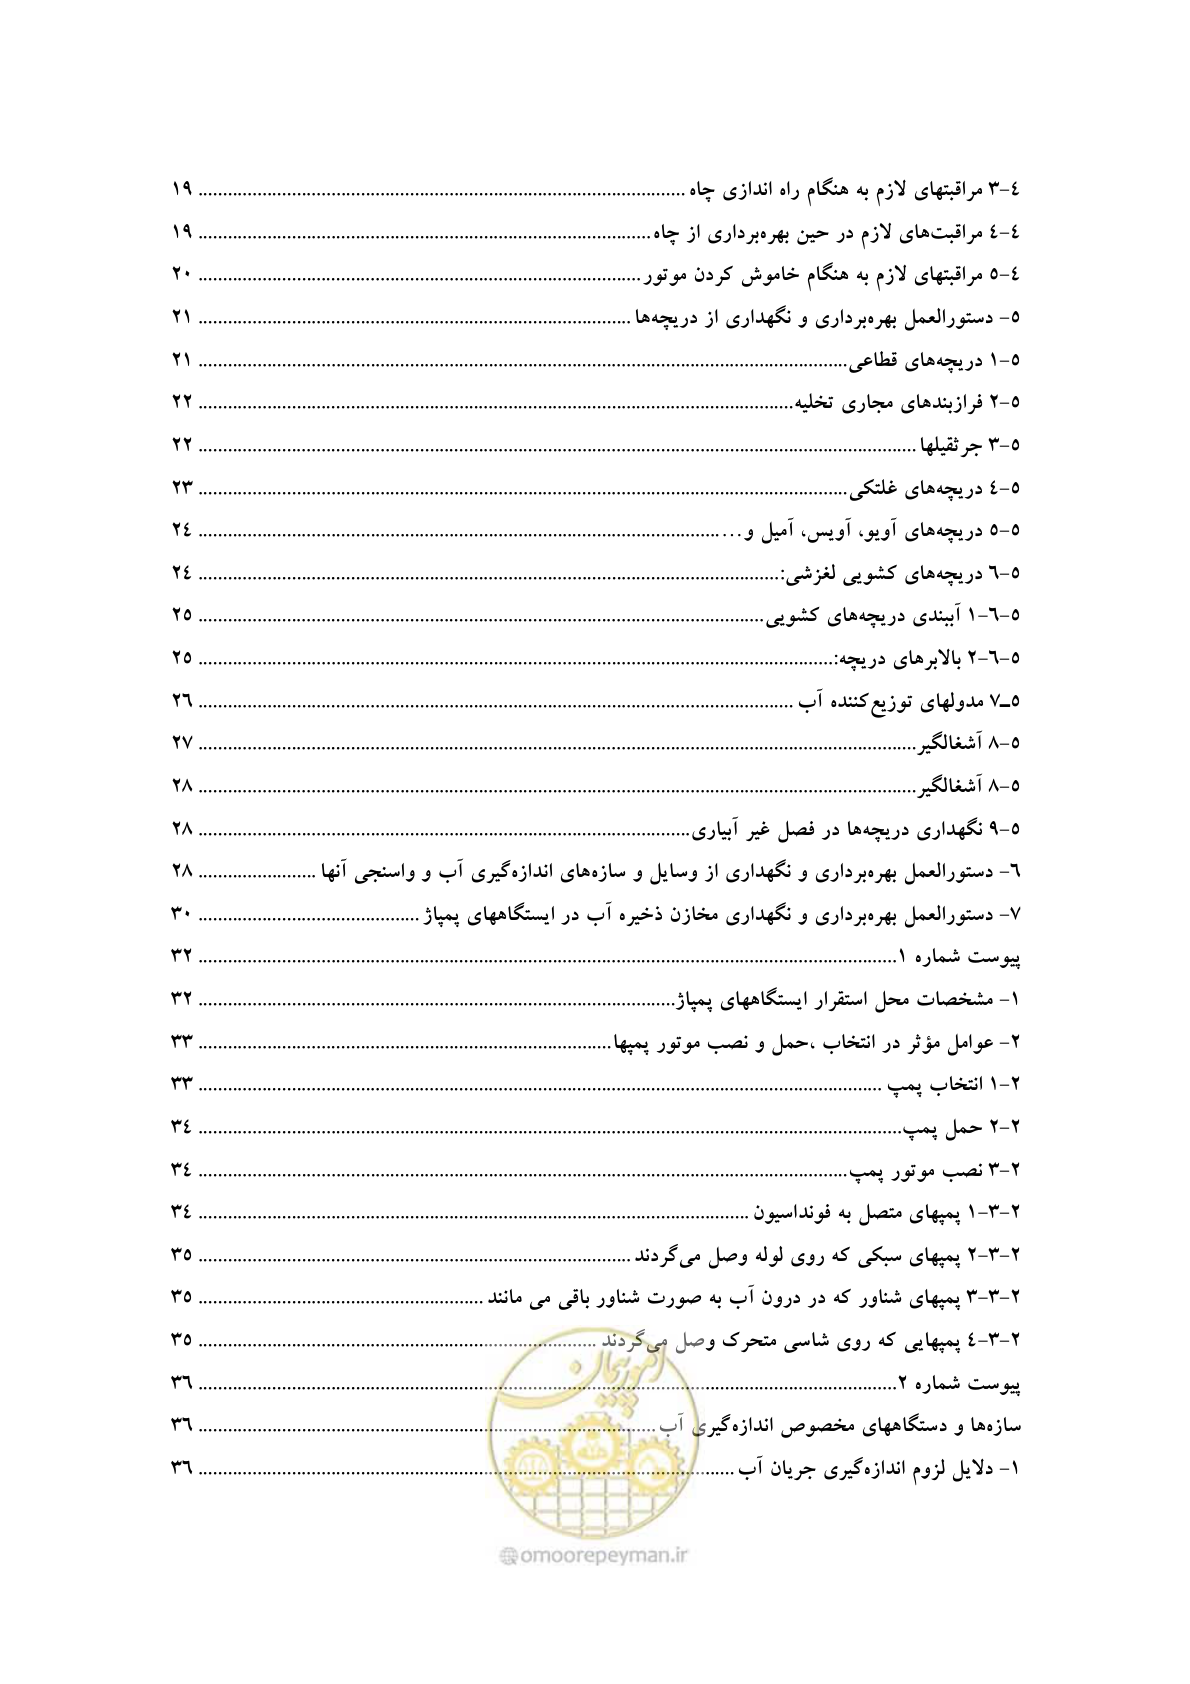 ۴-۳ مراقبتهای لازم به هنگام راه اندازی چاه ........ ۱۹
۴-۴ مراقبت‌های لازم در حین بهره‌برداری از چاه........ ۱۹
۴-۵ مراقبتهای لازم به هنگام خاموش کردن موتور ........ ۲۰
۵- دستورالعمل بهره‌برداری و نگهداری از دریچه‌ها ........ ۲۱
۵-۱ دریچه‌های قطاعی........ ۲۱
۵-۲ فرازبندهای مجاری تخلیه........ ۲۲
۵-۳ جرثقیلها ........ ۲۲
۵-۴ دریچه‌های غلتکی........ ۲۳
۵-۵ دریچه‌های آویو، آویس، آمیل و........... ۲۴
۵-۶ دریچه‌های کشویی لغزشی:........ ۲۴
۵-۶-۱ آببندی دریچه‌های کشویی........ ۲۵
۵-۶-۲ بالابرهای دریچه:........ ۲۵
۵ـ۷ مدولهای توزیع‌کننده آب ........ ۲۶
۵-۸ آشغالگیر........ ۲۷
۵-۸ آشغالگیر........ ۲۸
۵-۹ نگهداری دریچه‌ها در فصل غیر آبیاری........ ۲۸
۶- دستورالعمل بهره‌برداری و نگهداری از وسایل و سازه‌های اندازه‌گیری آب و واسنجی آنها ........ ۲۸
۷- دستورالعمل بهره‌برداری و نگهداری مخازن ذخیره آب در ایستگاههای پمپاژ ........ ۳۰
پیوست شماره ۱........ ۳۲
۱- مشخصات محل استقرار ایستگاههای پمپاژ........ ۳۲
۲- عوامل مؤثر در انتخاب ،حمل و نصب موتور پمپها........ ۳۳
۲-۱ انتخاب پمپ ........ ۳۳
۲-۲ حمل پمپ........ ۳۴
۲-۳ نصب موتور پمپ........ ۳۴
۲-۳-۱ پمپهای متصل به فونداسیون ........ ۳۴
۲-۳-۲ پمپهای سبکی که روی لوله وصل می‌گردند ........ ۳۵
۲-۳-۳ پمپهای شناور که در درون آب به صورت شناور باقی می مانند ........ ۳۵
۲-۳-۴ پمپهایی که روی شاسی متحرک وصل می‌گردند ........ ۳۵
پیوست شماره ۲........ ۳۶
سازه‌ها و دستگاههای مخصوص اندازه‌گیری آب ........ ۳۶
۱- دلایل لزوم اندازه‌گیری جریان آب ........ ۳۶
امور پیمان
omoorepeyman.ir